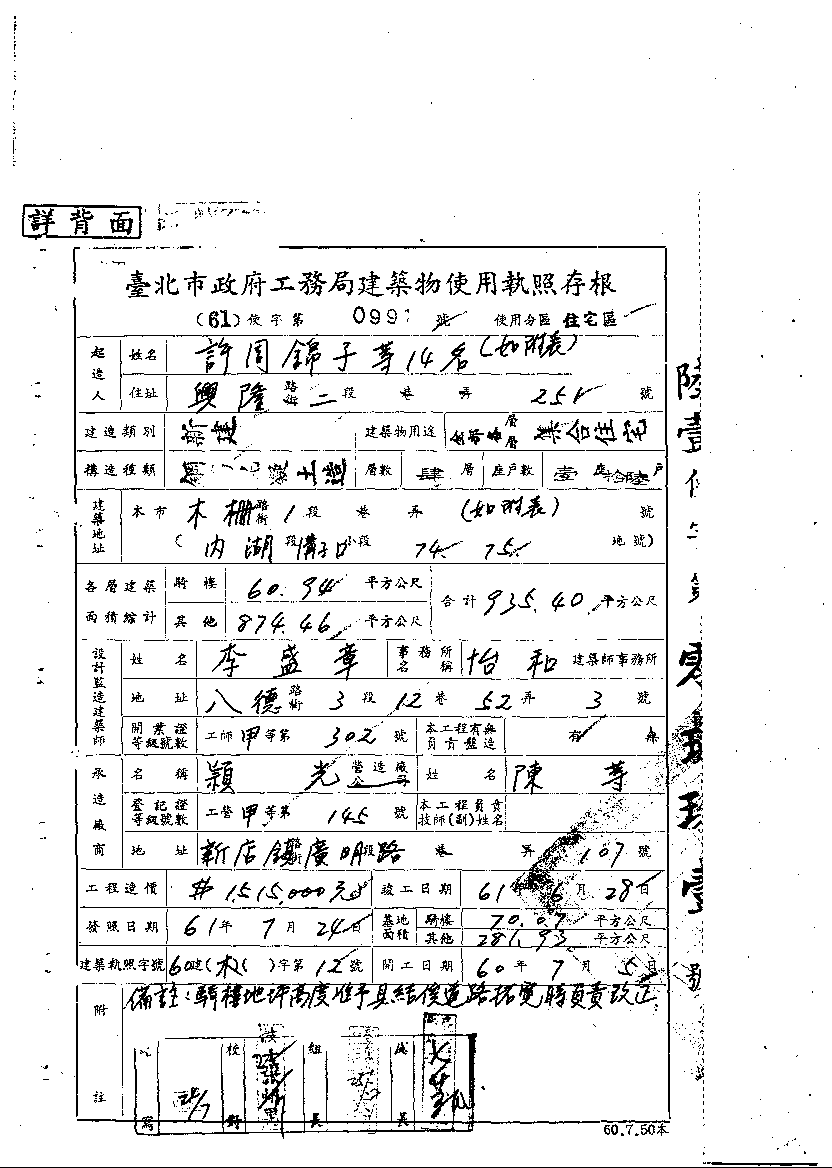 詳背面
臺北市政府工務局建築物使用執照存根
(61)使字第 0991 號 使用分區 住宅區
起造人 姓名 許周錦子等14名(如附表)
住址 興隆路街二段 巷 弄 251 號
建造類別 新建 建築物用途 層層 集合住宅
構造種類 土造 層數 肆 層 座戶數 壹 座 拾陸 戶
建築地址 本市 木柵路街 1 段 巷 弄 (如附表) 號
( 內湖 段 溝子口 小段 74. 75. 地號)
各層建築面積總計 騎樓 60.94 平方公尺 合計 935.40 平方公尺
其他 874.46 平方公尺
設計監造建築師 姓名 李盛章 事務所名稱 怡和 建築師事務所
地址 八德路街 3 段 12 巷 52 弄 3 號
開業證等級號數 工師甲等第 302 號 本工程有無負責監造 有 無
承造廠商 名稱 穎光 營造廠公司 姓名 陳等
登記證等級號數 工營甲等第 145 號 本工程負責技師(副)姓名
地址 新店鎮廣明路 巷 弄 107 號
工程造價 $1,515,000元 竣工日期 61年 6月 28日
發照日期 61年 7月 24日 基地面積 騎樓 70.07 平方公尺
其他 281.93 平方公尺
建築執照字號 60建(木)( )字第 12 號 開工日期 60年 7月 5日
附註 備註:騎樓地坪高度准予具結俟道路拓寬時負責改正
校對 組長
60.7.50本
陸壹